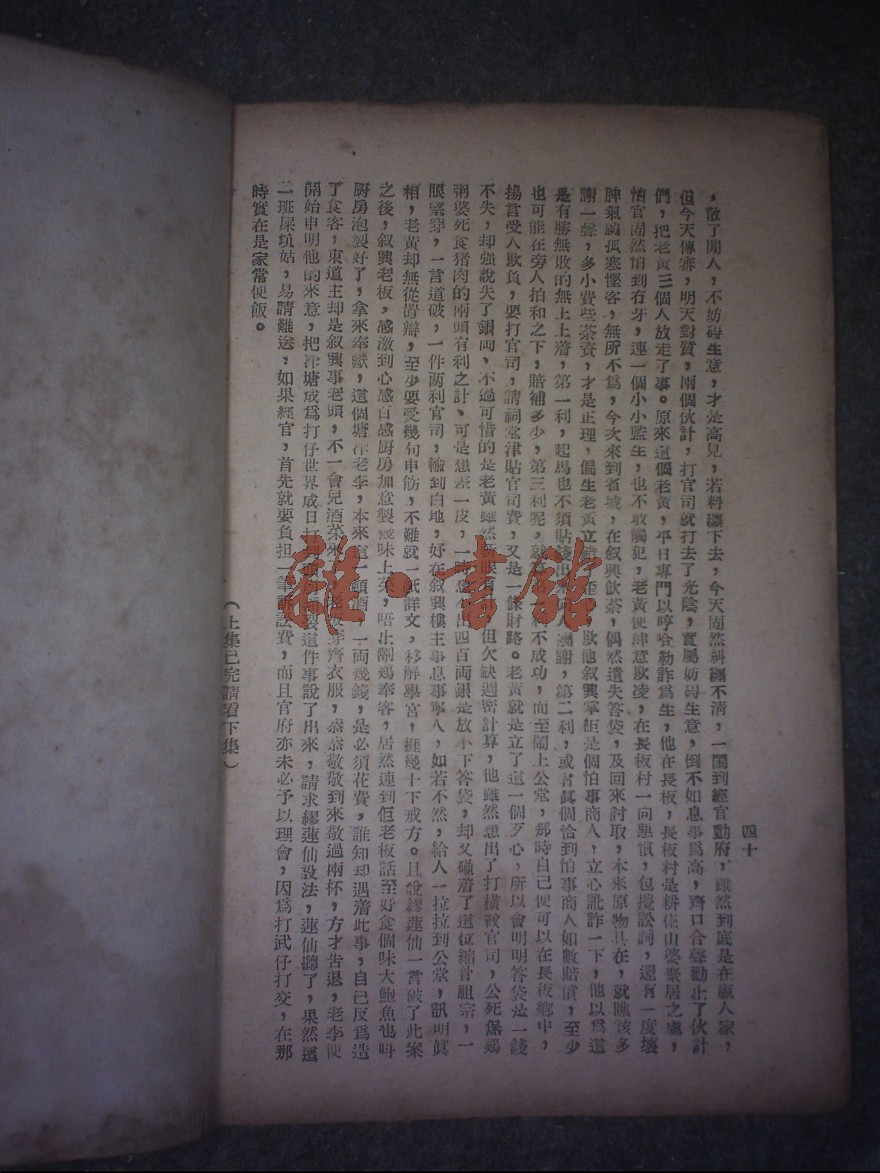 四十
，散了閒人，不妨碍生意，才是高見，若料纏下去，今天固然糾纏不清，一鬧到經官動府，雖然到底是在贏人家，
但今天傳審，明天對質，兩個伙計，打官司就打去了光陰，實屬妨碍生意，倒不如息事爲高，齊口合聲勸止了伙計
們，把老黃三個人放走了事。原來這個老黃，平日專門以哼哈勒詐爲生，他在長板，長板村是耕佬山婆聚居之處，
怕官固然怕到冇牙，連一個小小監生，也不敢觸犯，老黃便肆意欺凌，在長板村一向熟慣，包攬訟詞，還有一度壞
脾氣屬孤寒慳客，無所不爲，今次來到省城，在叙興飲茶，偶然遺失答袋，及回來討取，本來原物具在，就應該多
謝一聲，多小費些茶資，才是正理，偏生老黃立
欺他叙興掌柜是個怕事商人，立心訛詐一下，他以爲這
是有勝無敗的無上上着，第一利，起馬也不須貼錢出
酬謝，第二利，或者眞個恰到怕事商人如數賠償，至少
也可能在旁人拍和之下，賠補多少，第三利呢，就
不成功，而至鬧上公堂，那時自己便可以在長板鄉中，
揚言受人欺負，要打官司，請祠堂津貼官司費，又是一條財路。老黃就是立了這一個歹心，所以會明明答袋是一錢
不失，却强說失了銀両，不過可惜的是老黃雖然
但欠缺週密計算，他雖然想出了打橫敨官司，公死保鷄
痾婆死食猪肉的兩頭有利之計，可是想差一皮，一
出四百両銀是放不下答袋，却又碰着了這位縮骨祖宗，一
眼睇穿，一言道破，一件両利官司，輸到白地，好在叙興樓主事息事寧人，如若不然，給人一拉拉到公堂，訊明眞
相，老黃却無從置辯，至少要受幾句申斥，不難就一紙詳文，移解學宮，捱幾十下戒方。且說繆蓮仙一言破了此案
之後，叙興老板，感激到心感百感厨房加意製幾味上菜，唔止劏鷄奉客，居然連到佢老板話至好食個味大鮑魚也叫
厨房泡製好了，拿來奉獻，這個塘涌老李，本來這一頓酒
一両幾錢，是必須花費，誰知却遇着此事，自己反爲造
了食客，東道主却是叙興事老頭，不一會兒酒菜來
穿齊衣服，恭恭敬敬到來敬過兩杯，方才告退，老李便
開始申明他的來意，把涌塘成爲打仔世界成日打
製這件事說了出來，請求繆蓮仙設法，蓮仙聽了，果然這
一班屎坑姑，易請難送，如果經官，首先就要負担一筆訴訟費，而且官府亦未必予以理會，因爲打武仔打交，在那
時實在是家常便飯。
（上集已完請看下集）
雜·書館